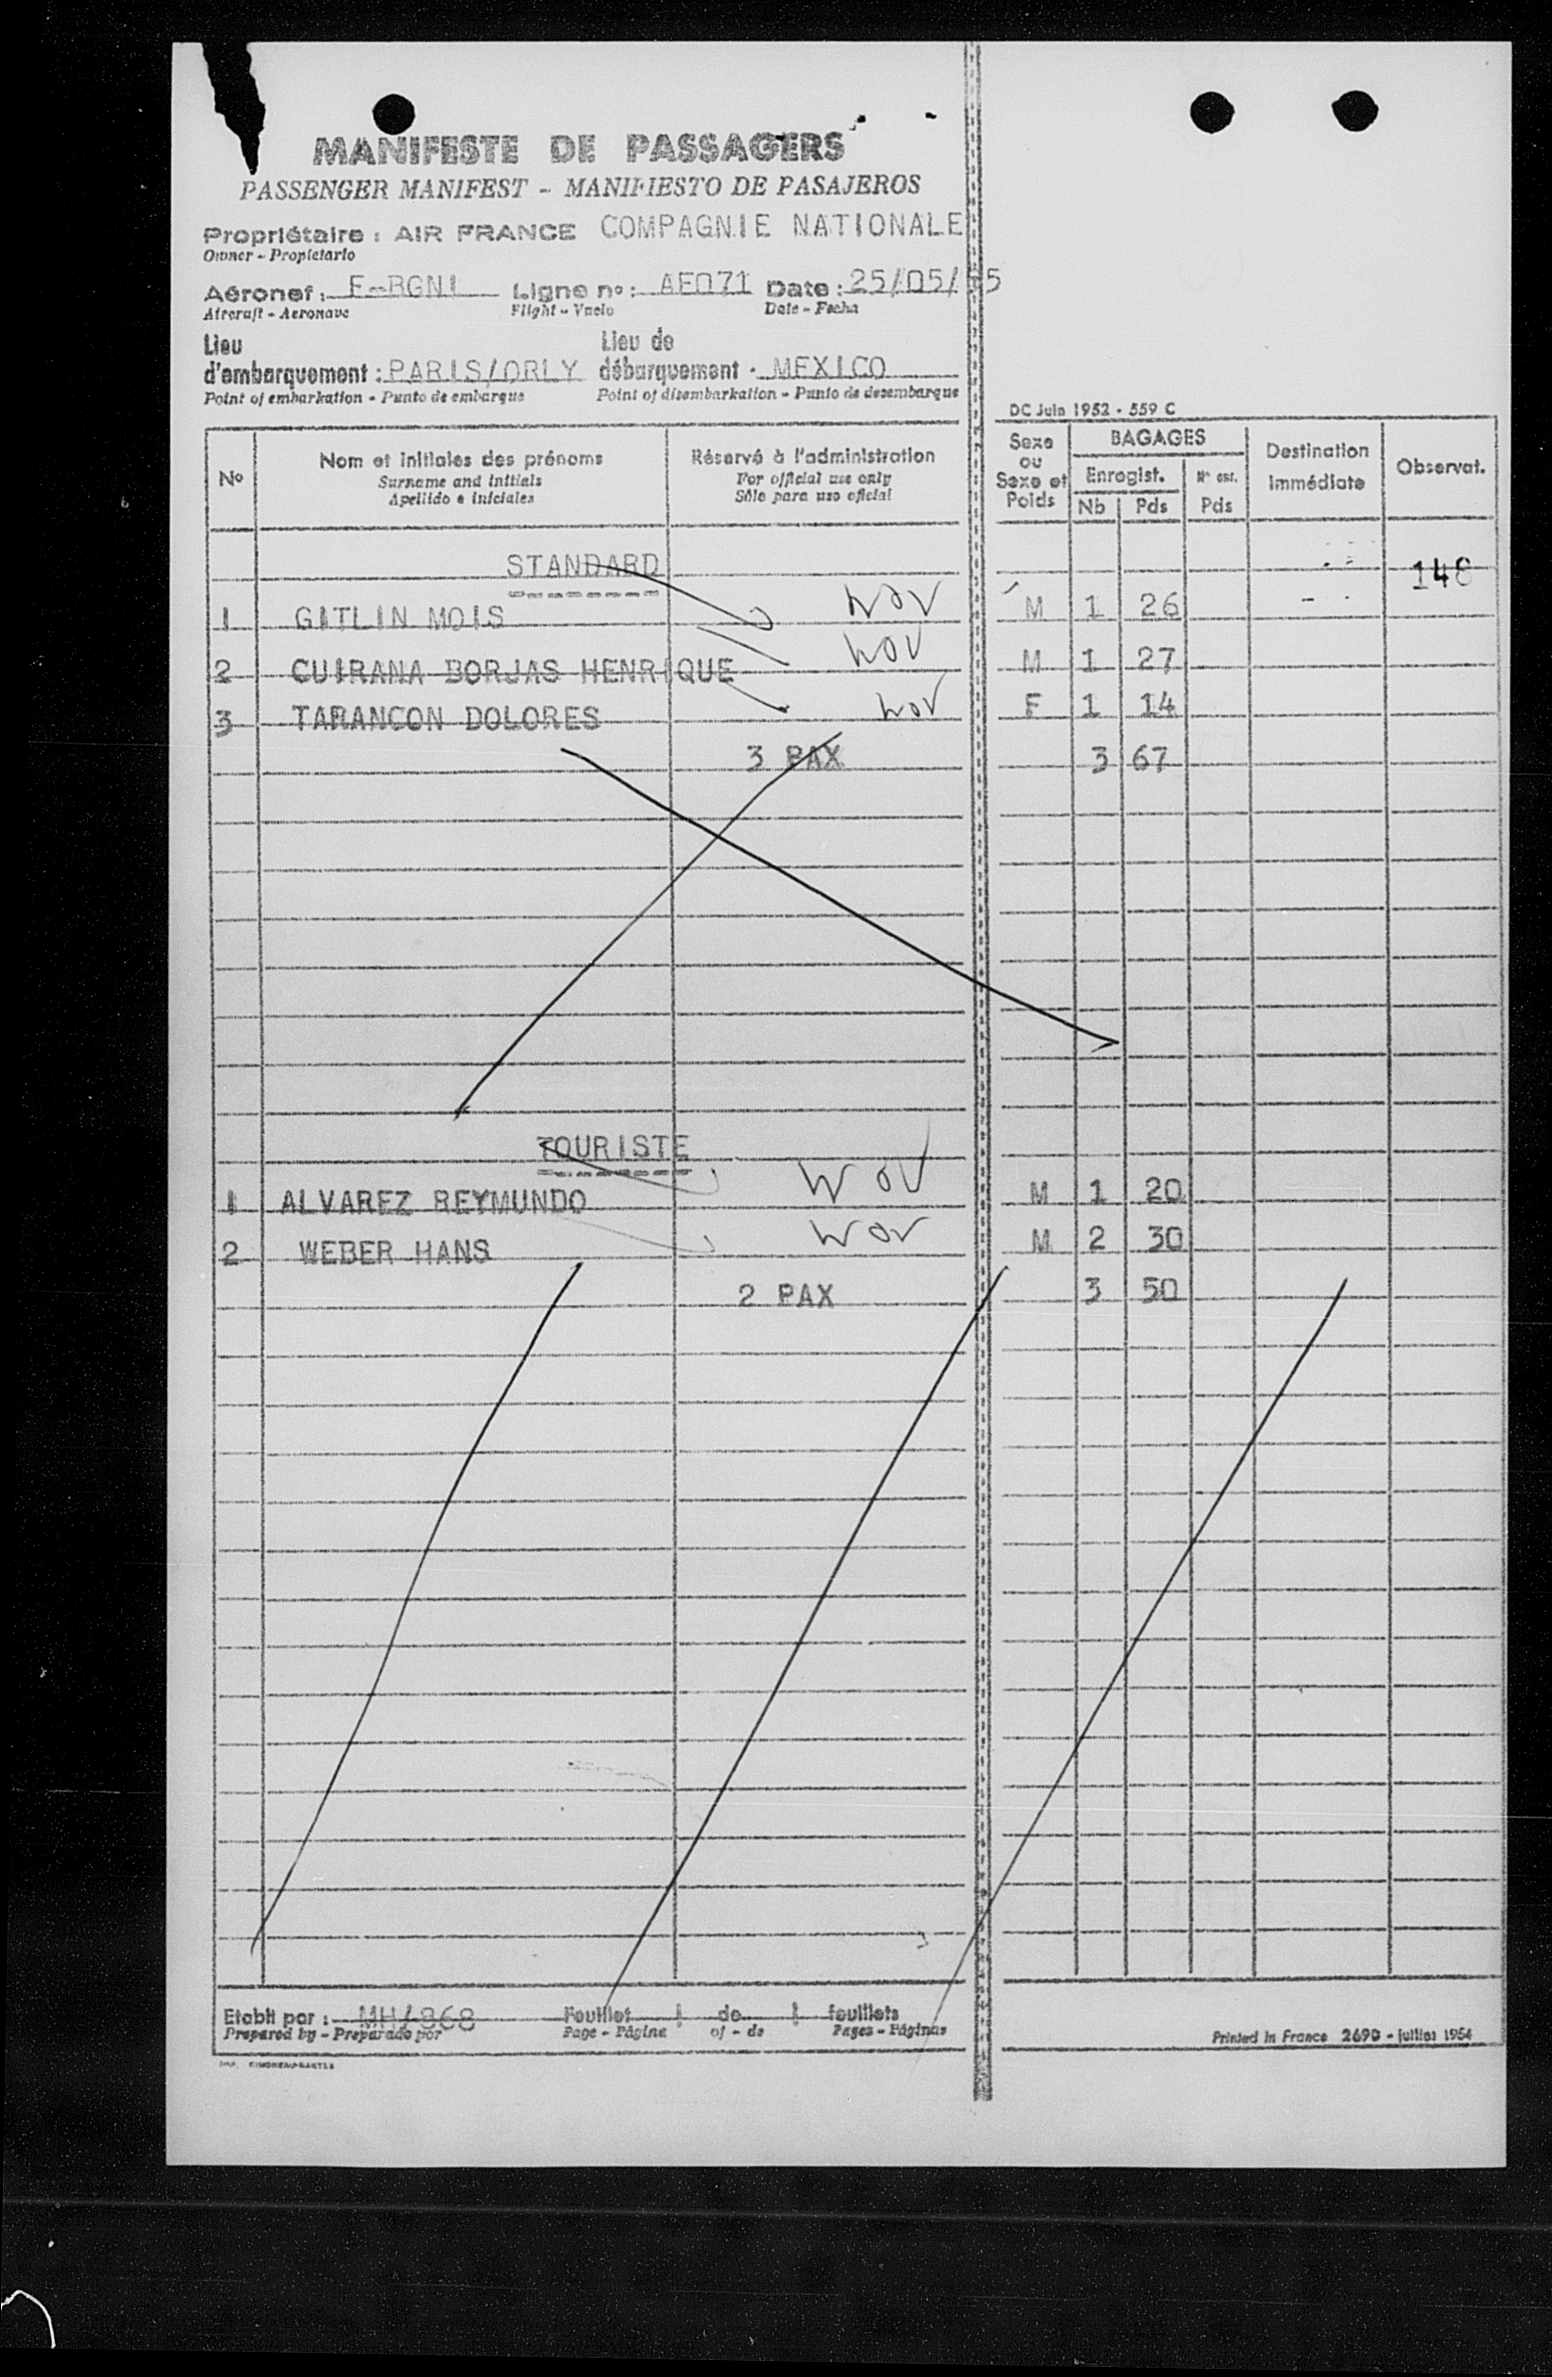 MANIFESTE DE PASSAGERS
PASSENGER MANIFEST - MANIFIESTO DE PASAJEROS
Propriétaire : AIR FRANCE COMPAGNIE NATIONALE
Owner - Propietario
Aéronef : F-BGNI Ligne n° : AF071 Date : 25/05/55
Aircraft - Aeronave Flight - Vuelo Date - Fecha
Lieu d'embarquement : PARIS/ORLY Lieu de débarquement : MEXICO
Point of embarkation - Punto de embarque Point of disembarkation - Punto de desembarque
DC Juin 1952 - 559 C
N° Nom et initiales des prénoms Réservé à l'administration Sexe ou Sexe et Poids BAGAGES Destination immédiate Observat.
Surname and initials For official use only Enregist.
Apellido e iniciales Sólo para uso oficial Nb Pds Pds
STANDARD
148
1 GITLIN MOIS M 1 26
2 CUIRANA BORJAS HENRIQUE M 1 27
3 TARANCON DOLORES F 1 14
3 PAX 3 67
TOURISTE
1 ALVAREZ REYMUNDO M 1 20
2 WEBER HANS M 2 30
2 PAX 3 50
Etabli par : MH/868 Feuillet 1 de 1 feuillets
Prepared by - Preparado por Page - Página of - de Pages - Páginas
Printed in France 2690 - juillet 1954